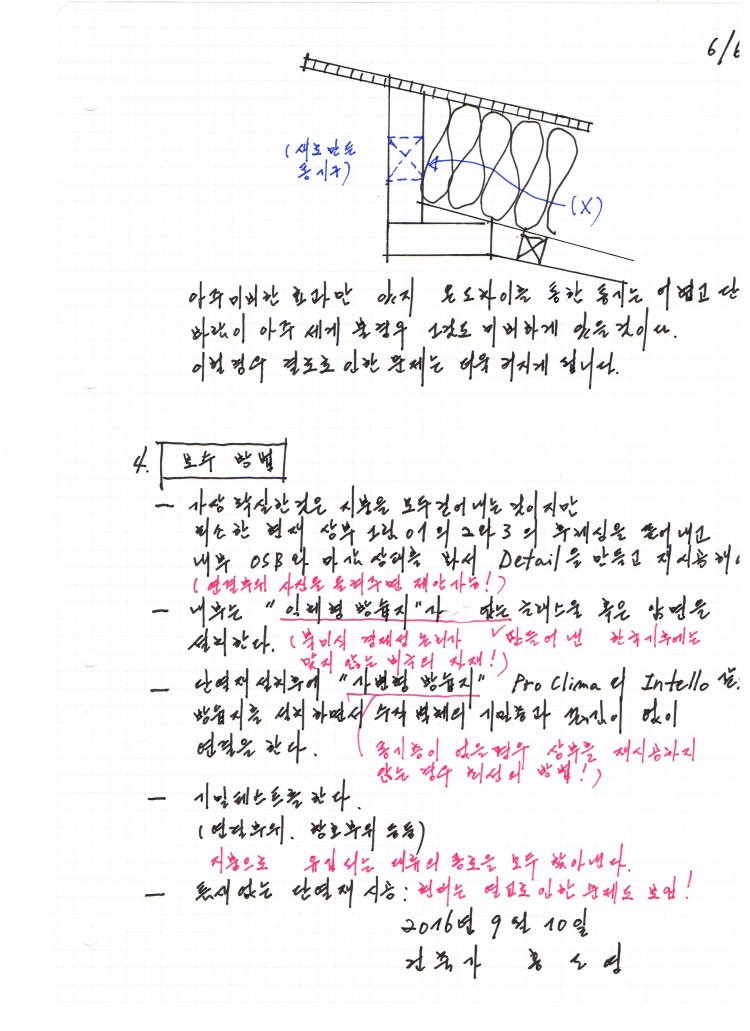 6/6
(새로만든
통기구)
(X)
아주미비한 효과만 있지 온도차이를 통한 통기는 어렵고 단
바람이 아주 세게 불경우 그것도 미비하게 있을것이다.
이럴경우 결로로 인한 문제는 더욱 커지게 됩니다.
4. 보수 방법
— 가장 확실한것은 지붕을 모두걷어내는 것이지만
최소한 현재 상부 그림 01의 2와 3의 우레탄을 뜯어내고
내부 OSB와 마감상태를 봐서 Detail을 만들고 재시공해야
(연결부위 사진을 올려주면 제안가능!)
— 내부는 "일체형 방습지"가 없는 그라스울 혹은 암면을
설치한다. (북미식 경제성 논리가 만들어 낸 한국기후에는
맞지 않는 미국의 자재!)
— 단열재 설치후에 "가변형 방습지" Pro Clima의 Intello
방습지를 설치하면서 수직 벽체의 기밀층과 끊김이 없이
연결을 한다.
(통기층이 없을경우 상부를 재시공하지
않는 경우 최선의 방법!)
— 기밀테스트를 한다.
(연결부위, 창호부위 등등)
지붕으로 유입되는 대류의 통로를 모두 찾아낸다.
— 틈새없는 단열재 시공: 현재는 열교로 인한 문제도 보임!
2016년 9월 10일
건축가 홍도영